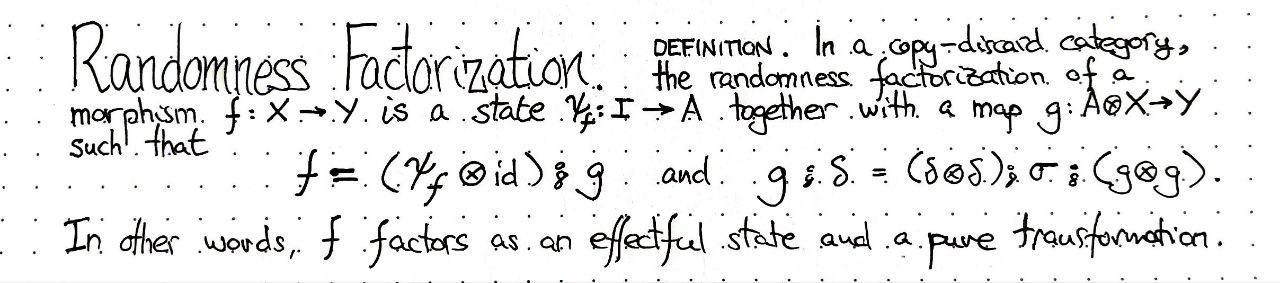 Randomness Factorization.
DEFINITION. In a copy-discard category,
the randomness factorization of a
morphism f: X → Y is a state Ψ_f: I → A together with a map g: A⊗X→Y
such that
f = (Ψ_f ⊗ id) ⨾ g and g ⨾ δ = (δ⊗δ) ⨾ σ ⨾ (g⊗g).
In other words, f factors as an effectful state and a pure transformation.